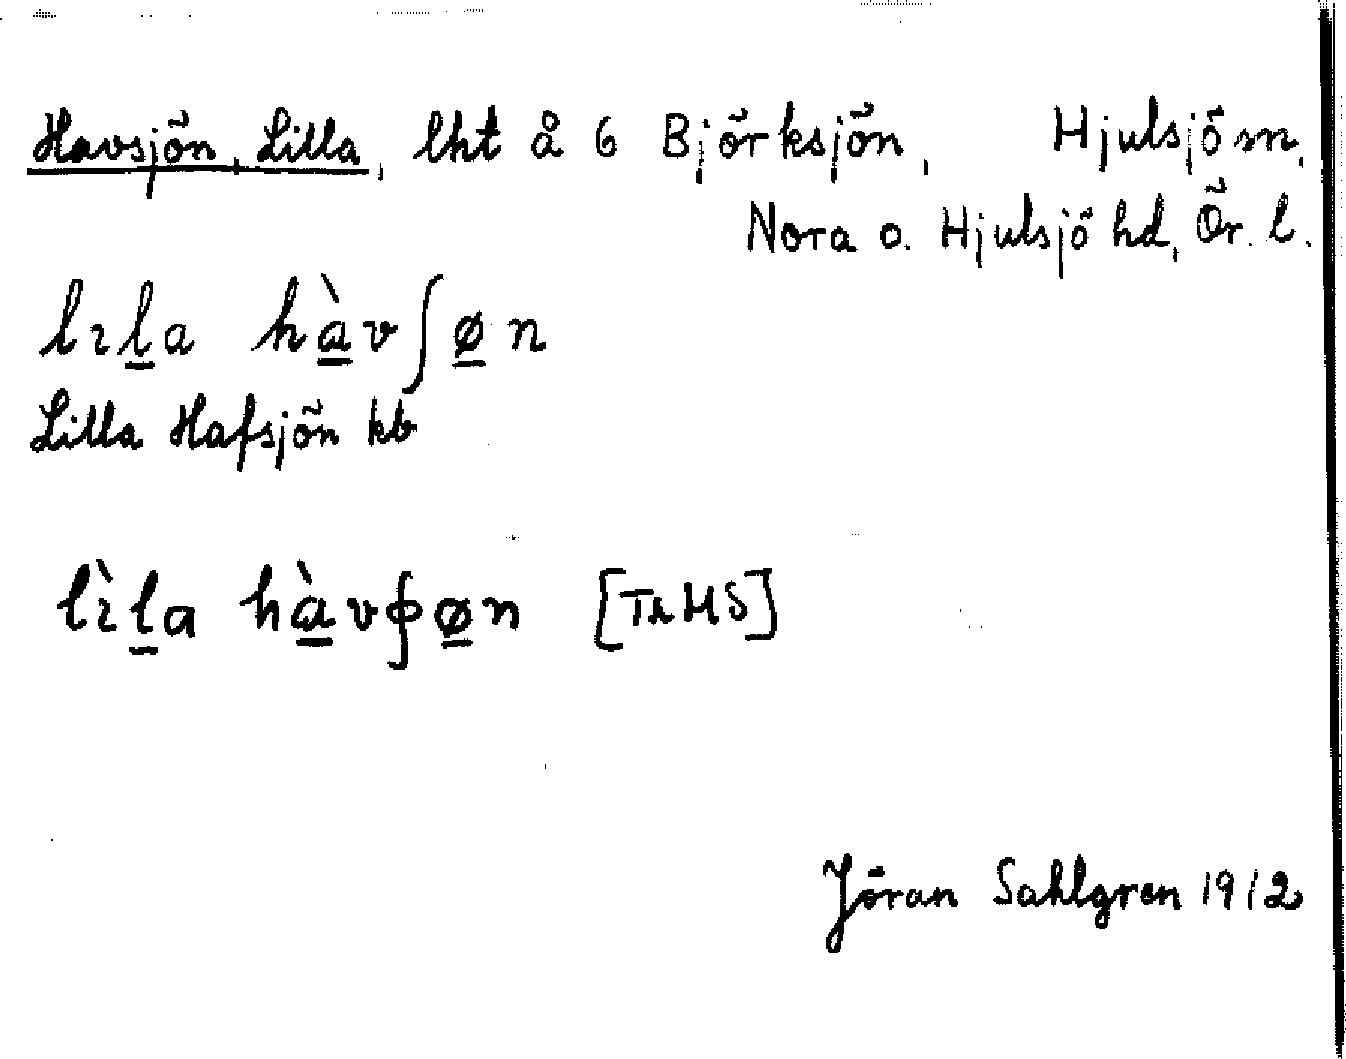 Havsjön, Lilla, lht å 6 Björksjön, Hjulsjö sn,
Nora o. Hjulsjö hd, Ör. l.
lıl̲a hà̲vʃø̲n
Lilla Hafsjön kb
lı̀l̲a hà̲vꞙø̲n [ThHS]
Jöran Sahlgren 1912